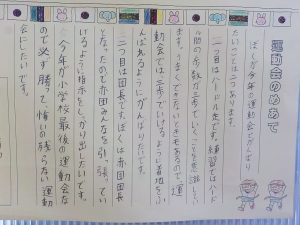 運動会のめあて
ぼくが今年の運動会でがんばり
たいことは二つあります。
一つ目はハードル走です。練習ではハード
ル間の歩数が三歩でいくことを意識してい
ます。うまくできないときもあるので、運
動会では三歩でいけるように着地をふ
んばれるようにがんばりたいです。
二つ目は団長です。ぼくは赤団団長
となったので赤団みんなを引っ張ってい
けるように指示をしっかり出したいです。
今年が小学校最後の運動会な
ので必ず勝って、悔いの残らない運動
会にしたいです。